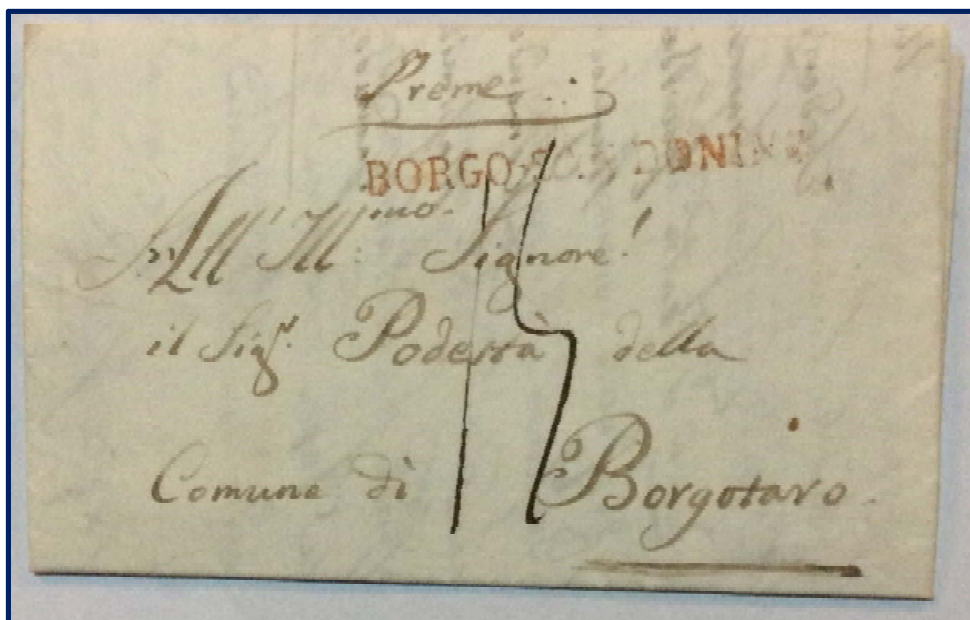 Preme
BORGO S. DONINO
All' Ill.mo Signore
il Sig.r Podestà della
Comune di Borgotaro
15